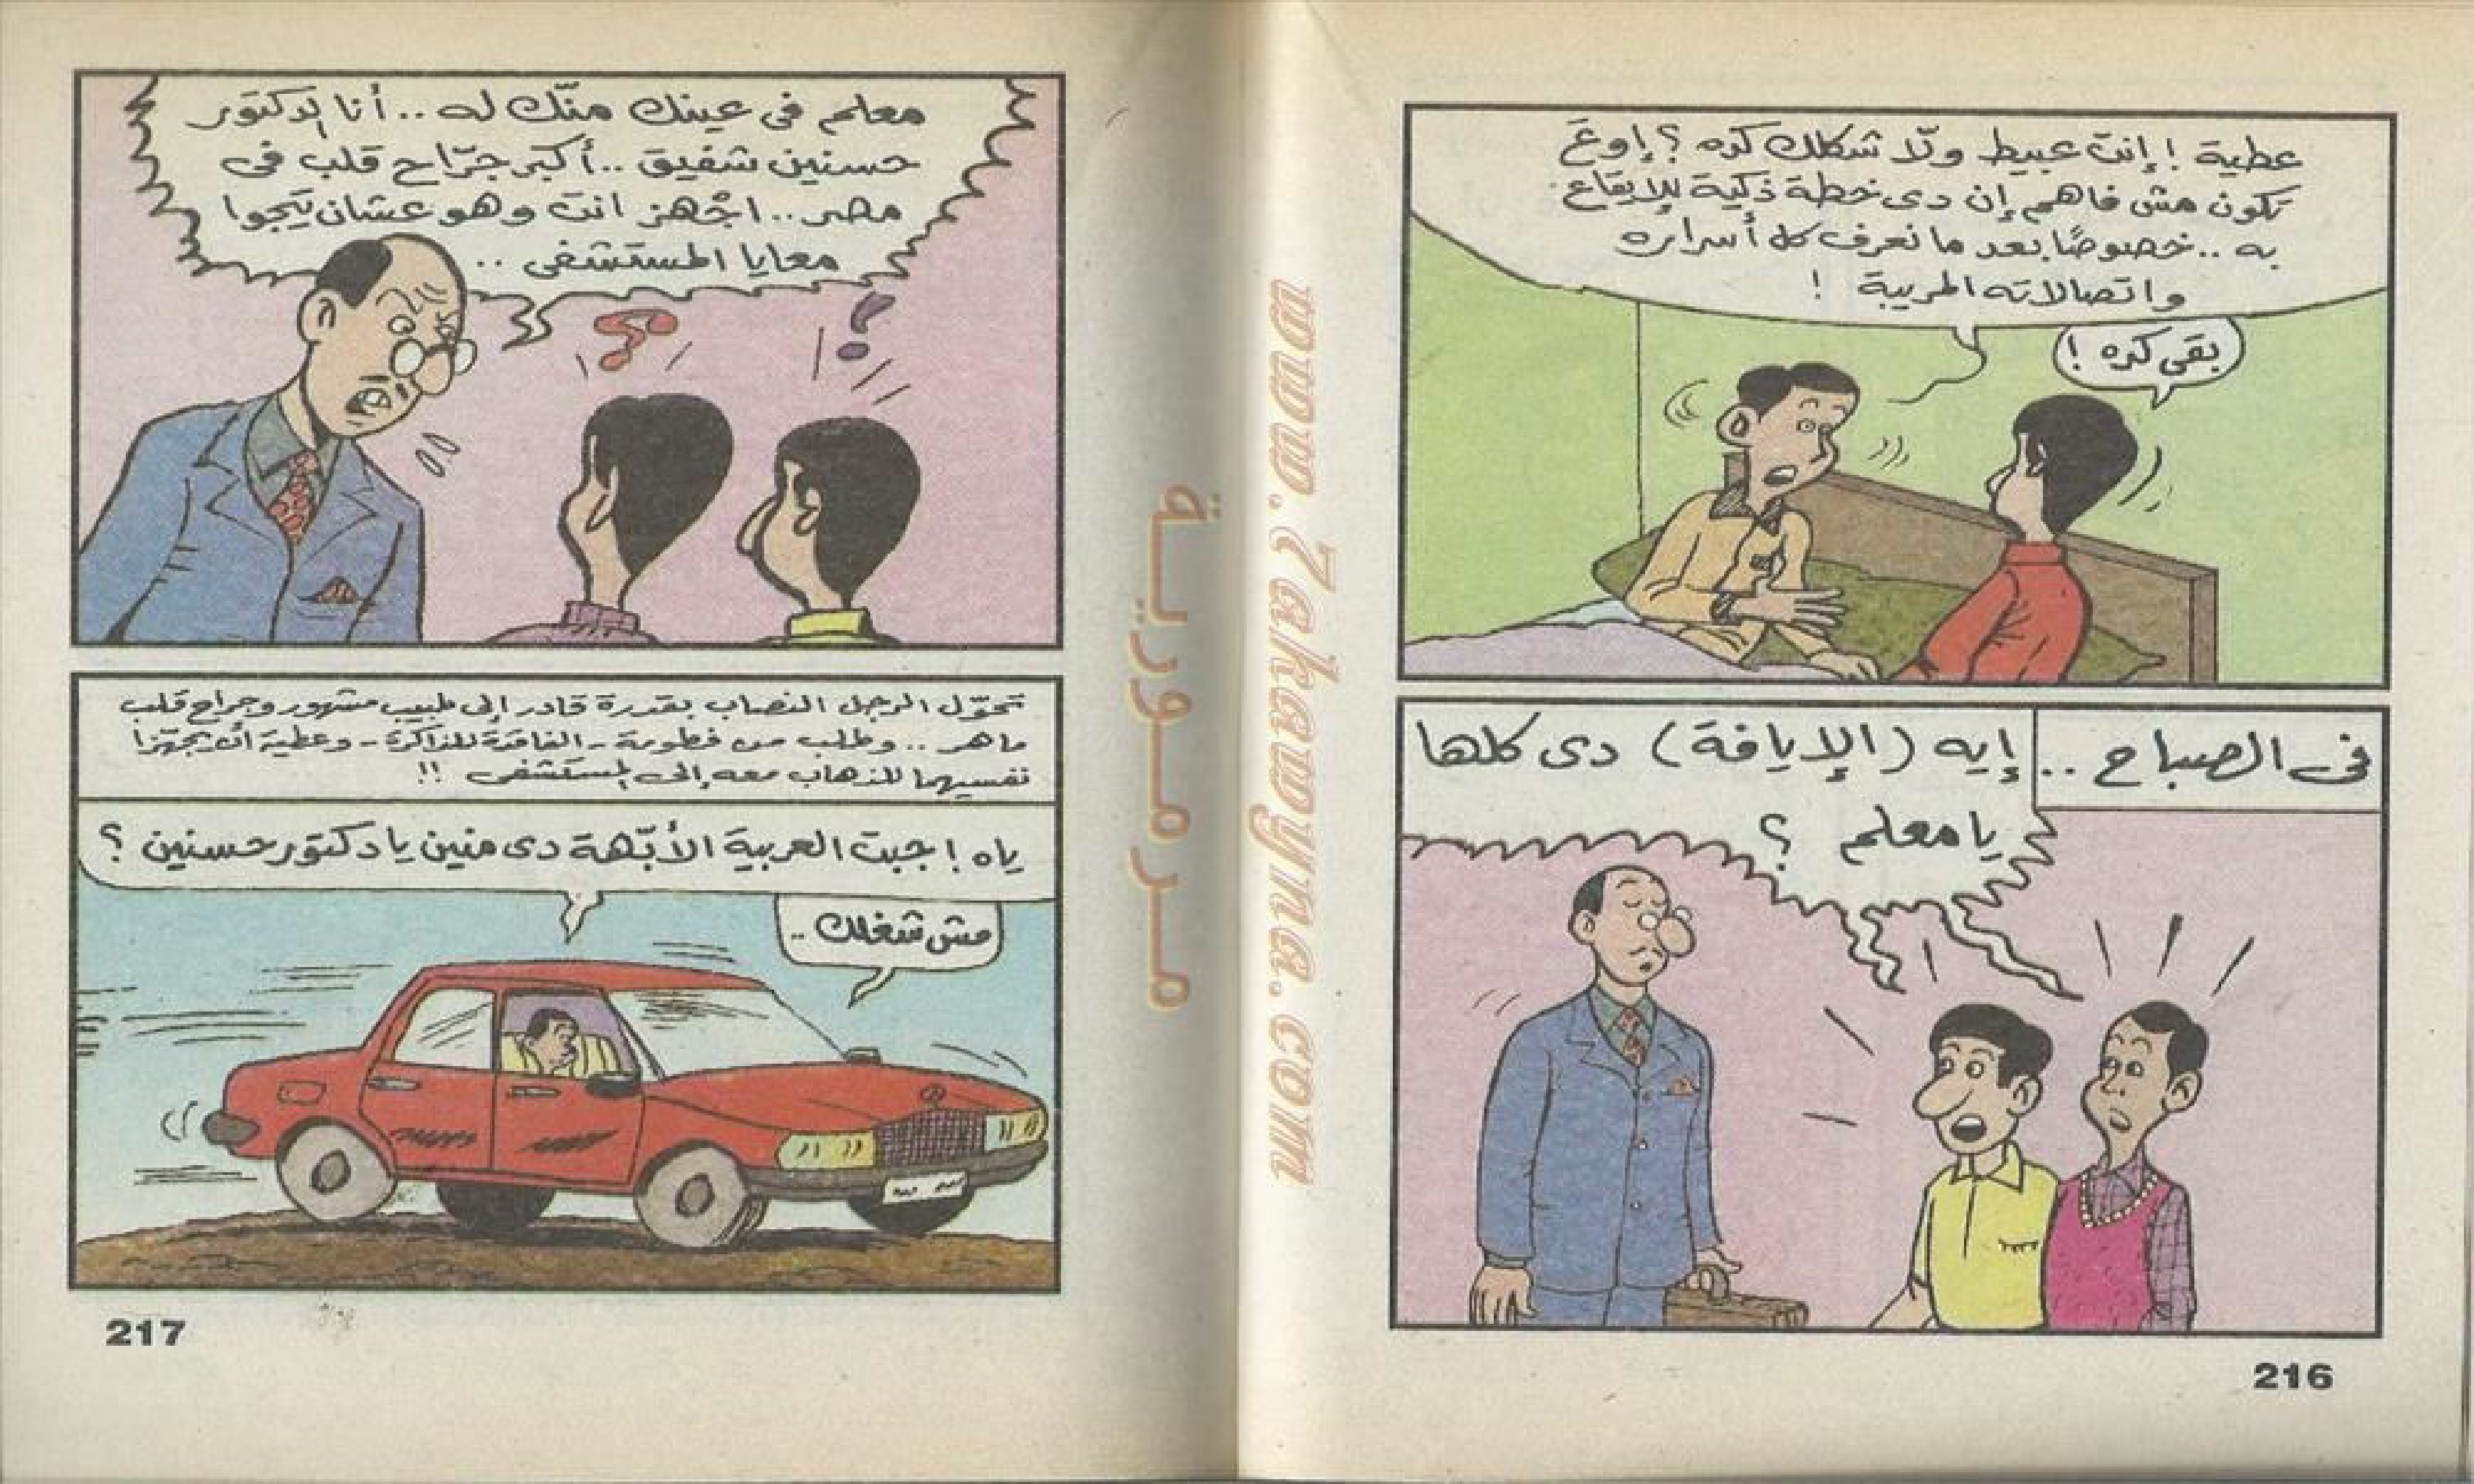 عطية ! إنت عبيط ولّا شكلك كده ؟ إوعَ
تكون مش فاهم إن دى خطة ذكية للإيقاع
به .. خصوصًا بعد ما نعرف كل أسراره
واتصالاته المريبة !
بقى كده !
فى الصباح ..
إيه (الإيافة) دى كلها
يا معلم ؟
216
معلم فى عينك منّك له .. أنا الدكتور
حسنين شفيق .. أكبر جرّاح قلب فى
مصر .. اجْهز انت وهو عشان تيجوا
معايا المستشفى ..
تحوّل الرجل النصاب بقدرة قادر إلى طبيب مشهور وجراح قلب
ماهر .. وطلب من فطومة - الفاقدة للذاكرة - وعطية أن يجهّزا
نفسيهما للذهاب معه إلى المستشفى !!
ياه ! جبت العربية الأبّهة دى منين يا دكتور حسنين ؟
مش شغلك ..
217
مرمورية
www.7akawyna.com